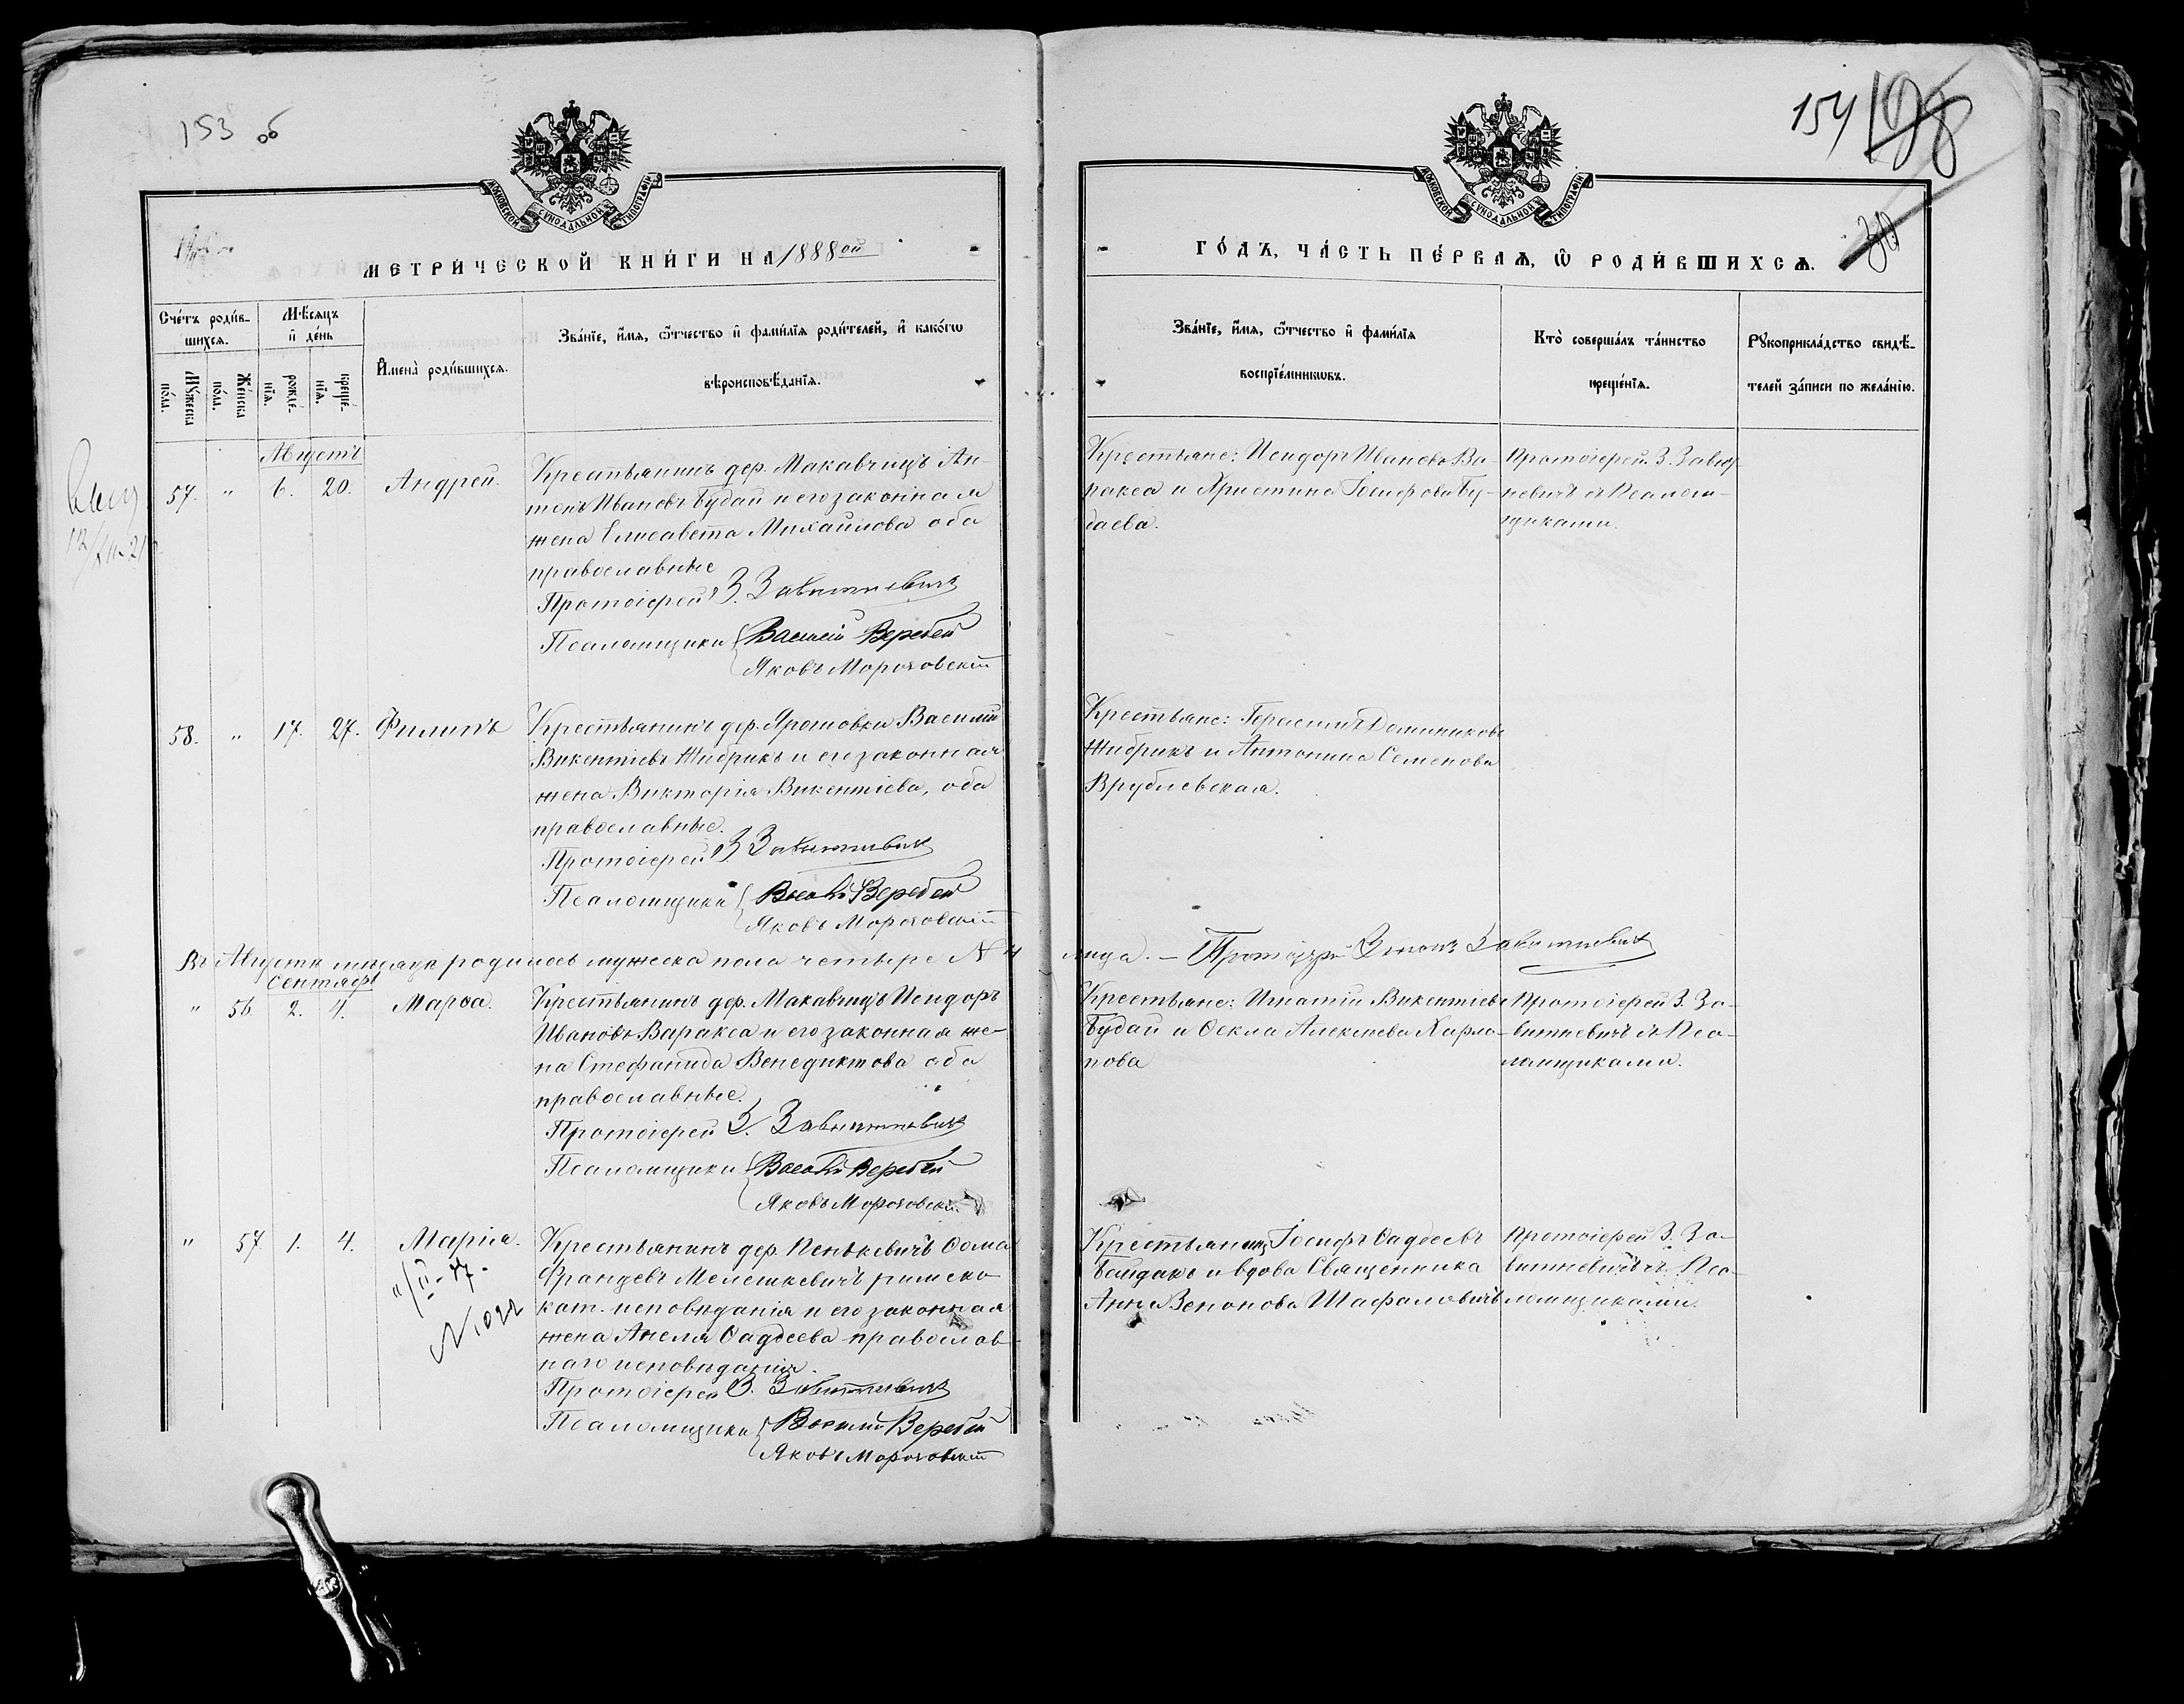 153 об
154
198
МОСКОВСКОЙ СѴНОДАЛЬНОЙ ТИПОГРАФІИ
МОСКОВСКОЙ СѴНОДАЛЬНОЙ ТИПОГРАФІИ
МЕТРИЧЕСКОЙ КНИГИ НА 1888ой
ГОДЪ, ЧАСТЬ ПЕРВАЯ, Ѡ РОДИВШИХСЯ.
Счетъ родив-
шихся.
Мужеска
пола.
Женска
пола.
Мѣсяцъ
и день
рожде-
нія.
креще-
нія.
Имена родившихся.
Званіе, имя, ѿчество и фамилія родителей, и какогѡ
вѣроисповѣданія.
Званіе, имя, ѿчество и фамилія
воспріемникѡвъ.
Кто совершалъ таинство
крещенія.
Рукоприкладство свидѣ-
телей записи по желанію.
Августъ
57. " 6. 20. Андрей.
Крестьянинъ дер. Макавчицъ Ан-
тонъ Ивановъ Будай и его законная
жена Елисавета Михаилова оба
православные
Протоіерей З. Завитневичъ
Псаломщики Василій Веребей
Яковъ Мороховскій
Крестьяне: Исидоръ Ивановъ Ва-
ракса и Христина Іосифова Бу-
даева.
Протоіерей З. Завит
невичъ съ Псалом-
щиками.
58. " 17. 27. Филипъ
Крестьянинъ дер. Яроговки Василий
Викентіевъ Жибрикъ и его законная
жена Викторія Викентіева, оба
православные.
Протоіерей З Завитневичъ
Псаломщики Василій Веребей
Яковъ Мороховскій
Крестьяне: Герасимъ Доминиковъ
Жибрикъ и Антонина Семенова
Врублевская.
Въ Августѣ мѣсяцѣ родилось мужеска пола четыре № 4 лица. – Протоіерей Зенонъ Завитневичъ
Сентябрь
" 56. 2. 4. Марѳа.
Крестьянинъ дер. Макавчицъ Исидоръ
ИвановъВаракса и его законная же-
на Стефанида Венедиктова оба
православные.
Протоіерей З. Завитневичъ
Псаломщики Василій Веребей
Яковъ Мороховскій
Крестьяне: Игнатій Викентіевъ
Будай и Ѳекла Алексѣева Харла-
пова
Протоіерей З. За-
витневичъ съ Пса-
ломщиками.
" 57 1. 4. Марія.
"/II-17.
№ 1092
Крестьянинъ дер. Пенькевичъ Ѳома
Францевъ Мелешкевичъ римско
кат. исповѣданія и его законная
жена Анеля Ѳаддеева православ-
наго исповѣданія.
Протоіерей З. Завитневичъ
Псаломщики Василій Веребей
Яковъ Мороховскій
Крестьянинъ Іосифъ Ѳаддеевъ
Байдакъ и вдова Священника
Анна Зенонова Шафаловичъ
Протоіерей З. За-
витневичъ съ Пса-
ломщиками.